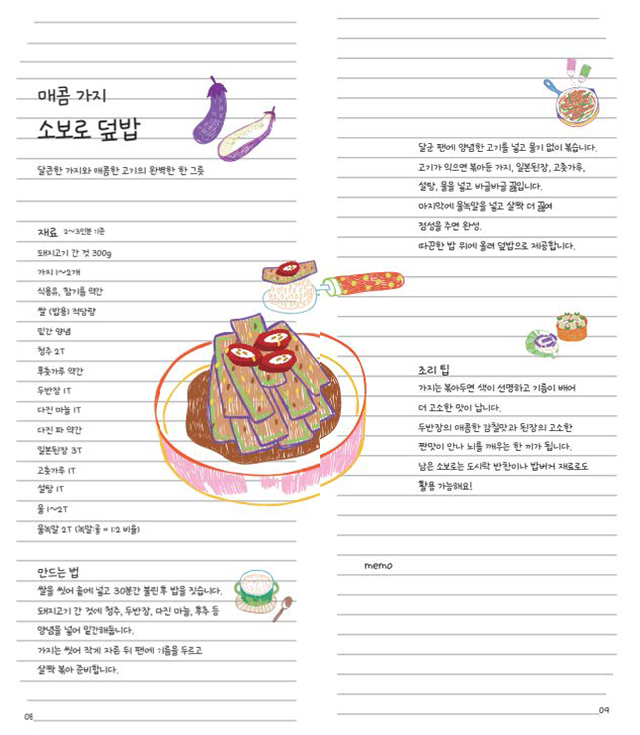 매콤 가지
소보로 덮밥
달큰한 가지와 매콤한 고기의 완벽한 한 그릇
재료 2~3인분 기준
돼지고기 간 것 300g
가지 1~2개
식용유, 참기름 약간
쌀 (밥용) 적당량
밑간 양념
청주 2T
후춧가루 약간
두반장 1T
다진 마늘 1T
다진 파 약간
일본된장 3T
고춧가루 1T
설탕 1T
물 1~2T
물녹말 2T (녹말:물 = 1:2 비율)
만드는 법
쌀을 씻어 솥에 넣고 30분간 불린 후 밥을 짓습니다.
돼지고기 간 것에 청주, 두반장, 다진 마늘, 후추 등
양념을 넣어 밑간해둡니다.
가지는 씻어 작게 자른 뒤 팬에 기름을 두르고
살짝 볶아 준비합니다.
08
달군 팬에 양념한 고기를 넣고 물기 없이 볶습니다.
고기가 익으면 볶아둔 가지, 일본된장, 고춧가루,
설탕, 물을 넣고 바글바글 끓입니다.
마지막에 물녹말을 넣고 살짝 더 끓여
점성을 주면 완성.
따끈한 밥 위에 올려 덮밥으로 제공합니다.
조리 팁
가지는 볶아두면 색이 선명하고 기름이 배어
더 고소한 맛이 납니다.
두반장의 매콤한 감칠맛과 된장의 고소한
짠맛이 만나 뇌를 깨우는 한 끼가 됩니다.
남은 소보로는 도시락 반찬이나 밥버거 재료로도
활용 가능해요!
memo
09